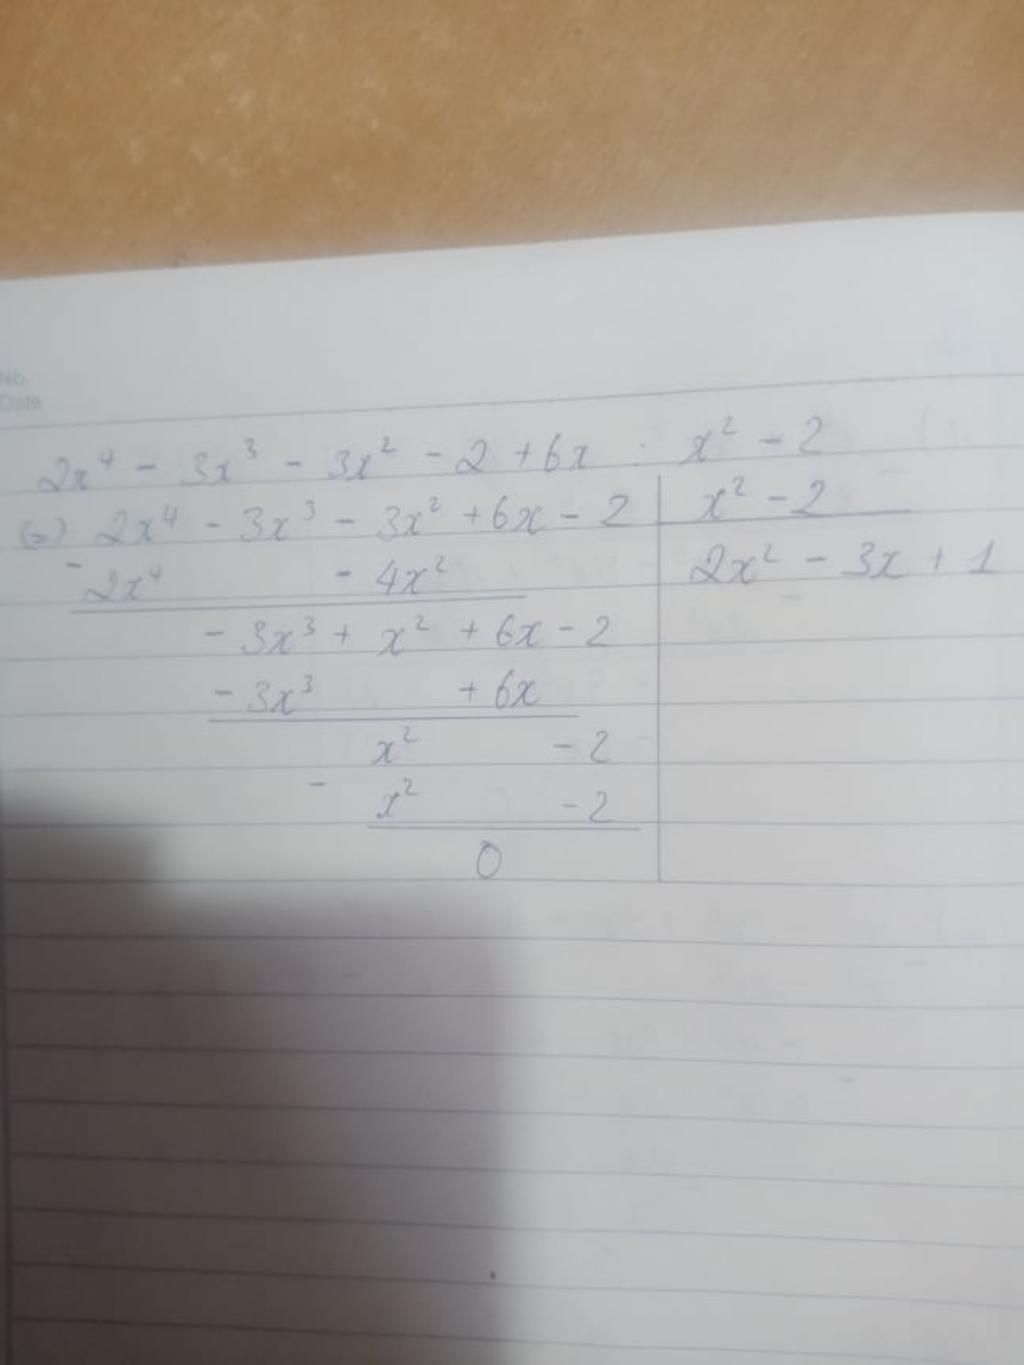 No.
Date
2x⁴ - 3x³ - 3x² - 2 + 6x : x² - 2
(=) 2x⁴ - 3x³ - 3x² + 6x - 2 | x² - 2
- 2x⁴ - 4x² | 2x² - 3x + 1
- 3x³ + x² + 6x - 2
- 3x³ + 6x
x² - 2
- x² - 2
0